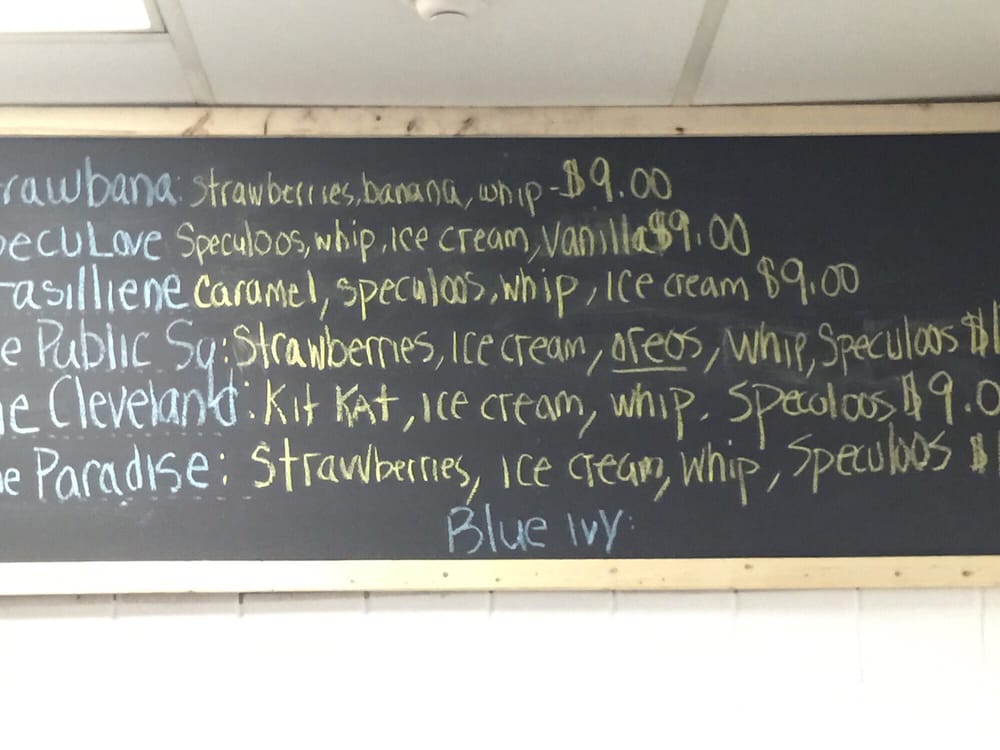 rawbana: strawberries, banana, whip - $9.00
pecuLove Speculoos, whip, Ice cream, Vanilla $9.00
rasilliene Caramel, speculoos, whip, Ice cream $9.00
e Public Sq: Strawberries, Ice cream, oreos, whip, Speculoos $1
he Cleveland: Kit Kat, ice cream, whip. Speculoos $9.0
e Paradise: Strawberries, Ice cream, whip, Speculoos $1
Blue Ivy: